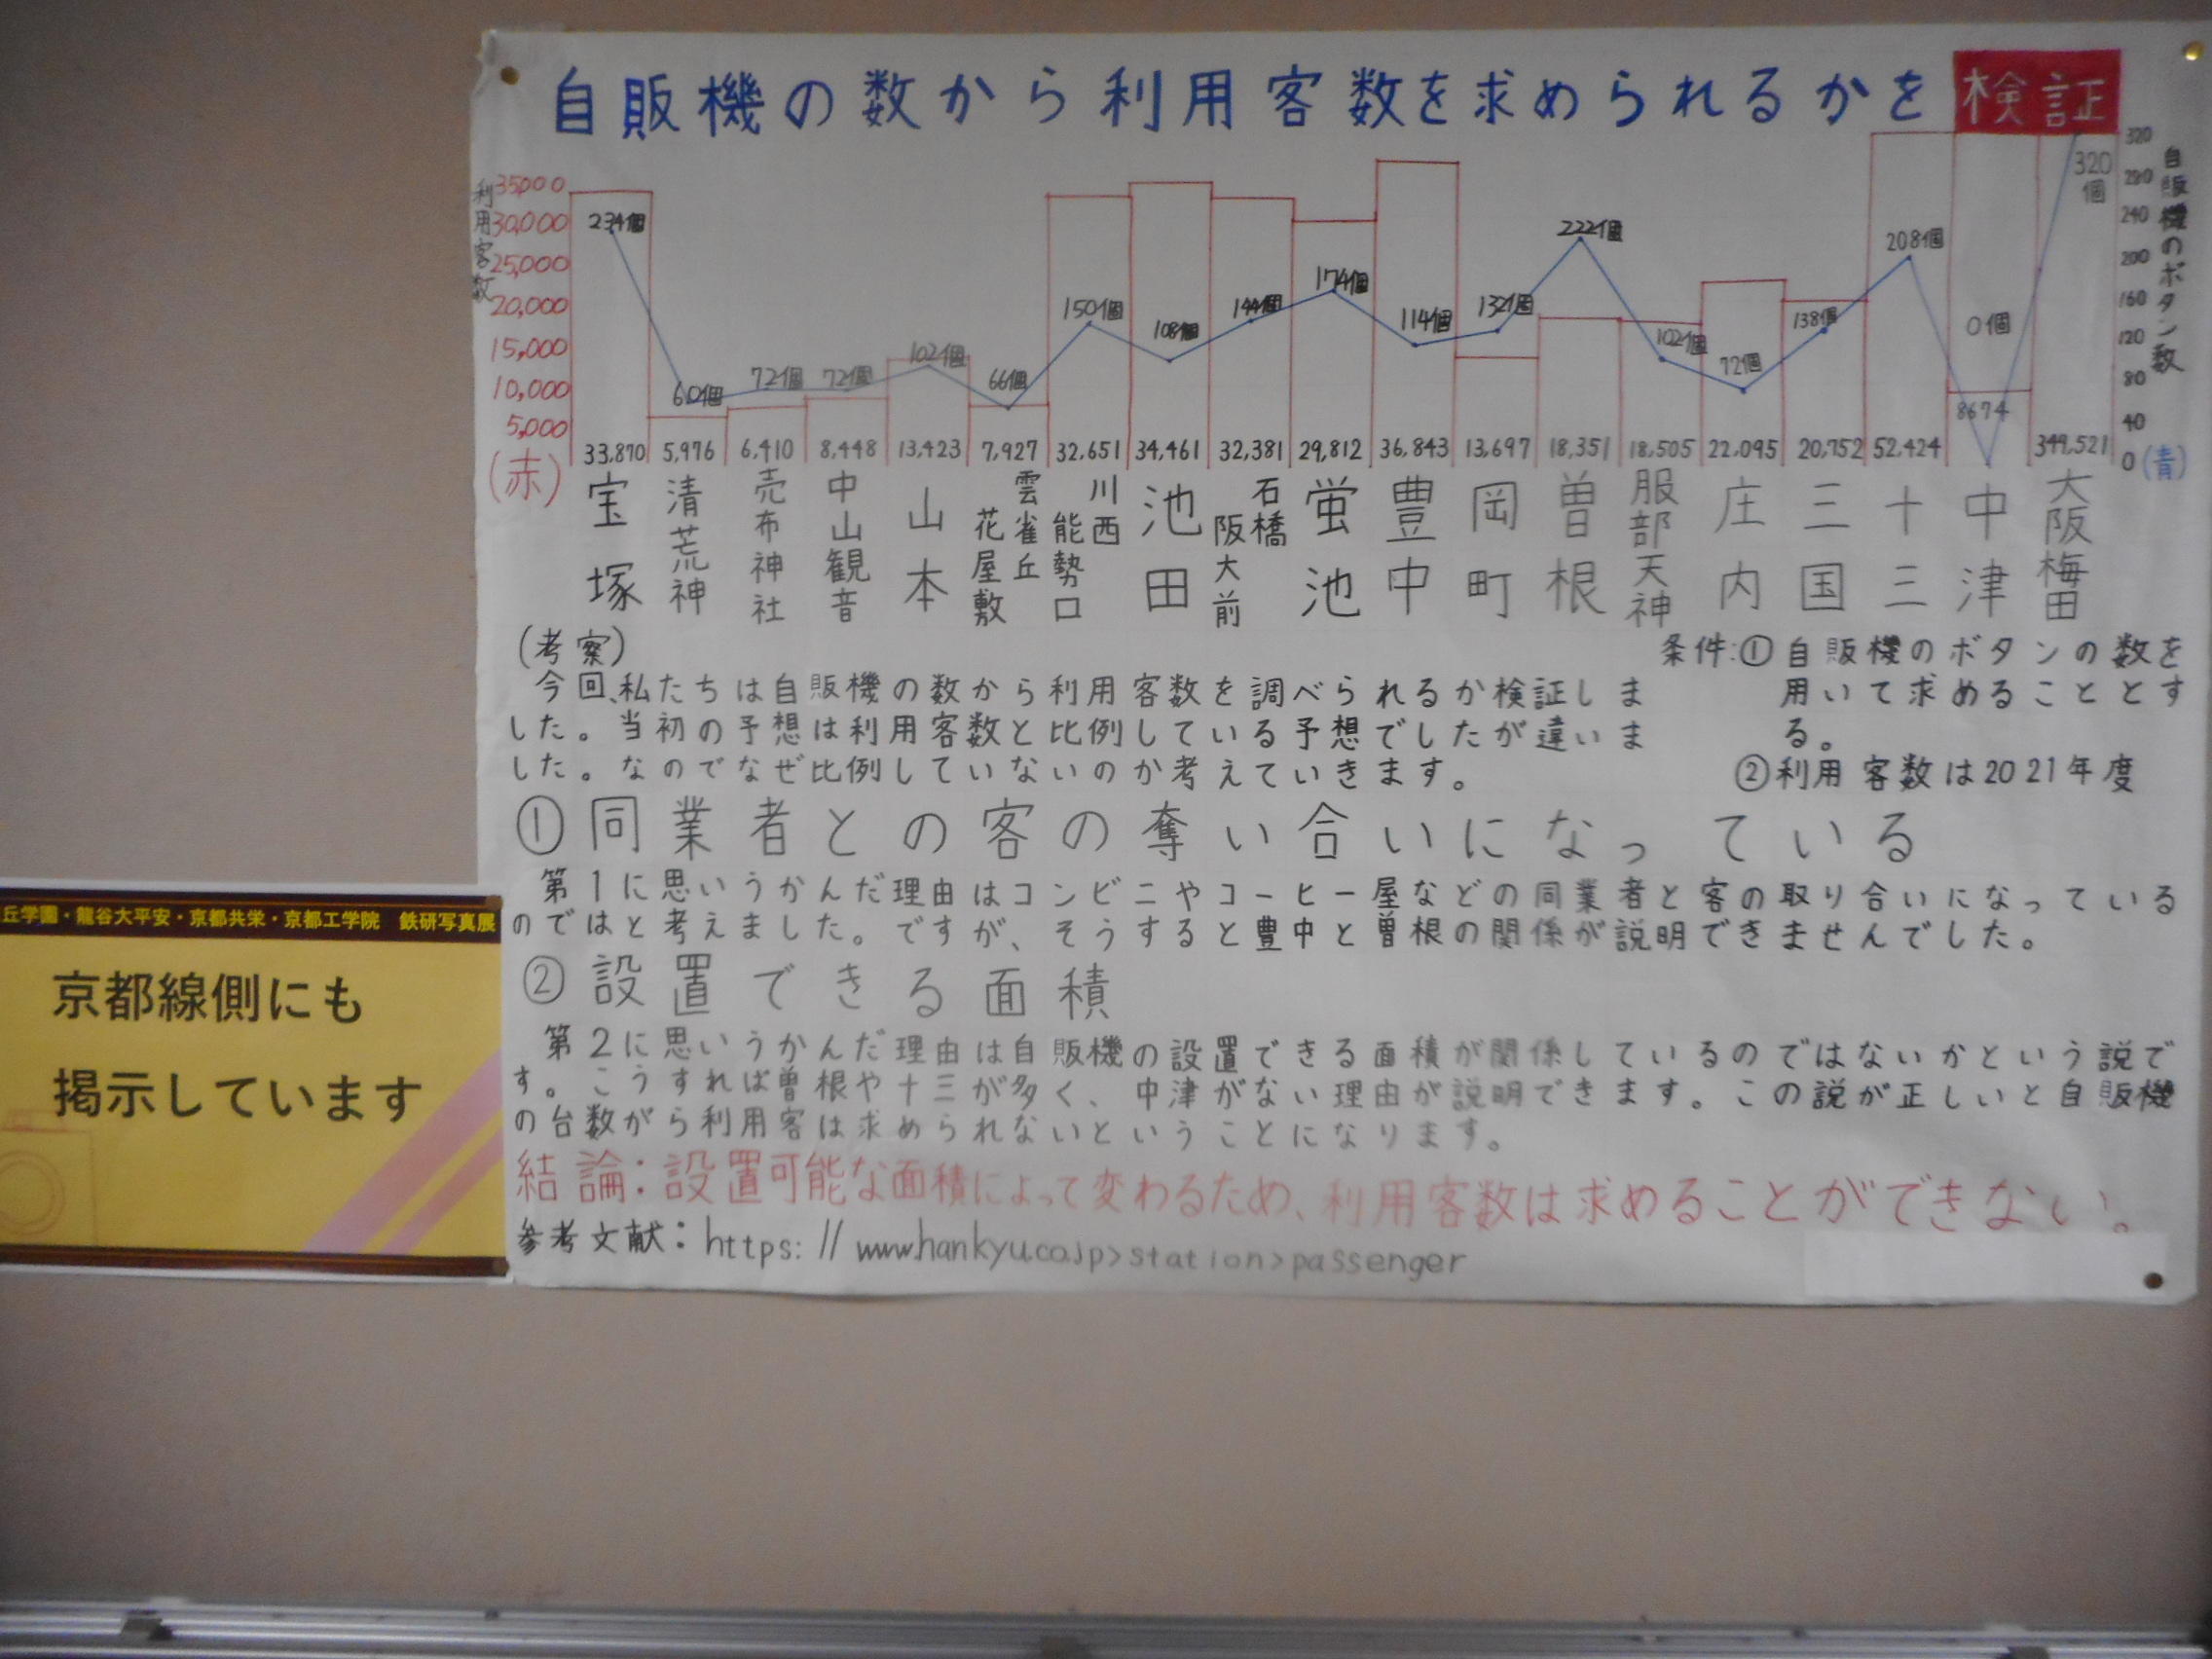 自販機の数から利用客数を求められるかを検証
利用客数
35,000
30,000
25,000
20,000
15,000
10,000
5,000
(赤)
自販機のボタン数
320
280
240
200
160
120
80
40
0
(青)
234個 60個 72個 72個 102個 66個 150個 108個 144個 174個 114個 132個 222個 102個 72個 138個 208個 0個 320個
33,870 5,976 6,410 8,448 13,423 7,927 32,651 34,461 32,381 29,812 36,843 13,697 18,351 18,505 22,095 20,752 52,424 8674 349,521
宝塚 清荒神 売布神社 中山観音 山本 雲雀丘花屋敷 川西能勢口 池田 石橋阪大前 蛍池 豊中 岡町 曽根 服部天神 庄内 三国 十三 中津 大阪梅田
条件:①自販機のボタンの数を
用いて求めることとす
る。
②利用客数は2021年度
(考察)
今回、私たちは自販機の数から利用客数を調べられるか検証しま
した。当初の予想は利用客数と比例している予想でしたが違いま
した。なのでなぜ比例していないのか考えていきます。
①同業者との客の奪い合いになっている
第1に思いうかんだ理由はコンビニやコーヒー屋などの同業者と客の取り合いになっている
のではと考えました。ですが、そうすると豊中と曽根の関係が説明できませんでした。
②設置できる面積
第2に思いうかんだ理由は自販機の設置できる面積が関係しているのではないかという説で
す。こうすれば曽根や十三が多く、中津がない理由が説明できます。この説が正しいと自販機
の台数がら利用客は求められないということになります。
結論:設置可能な面積によって変わるため、利用客数は求めることができない。
参考文献:https://www.hankyu.co.jp>station>passenger
丘学園・龍谷大平安・京都共栄・京都工学院 鉄研写真展
京都線側にも
掲示しています